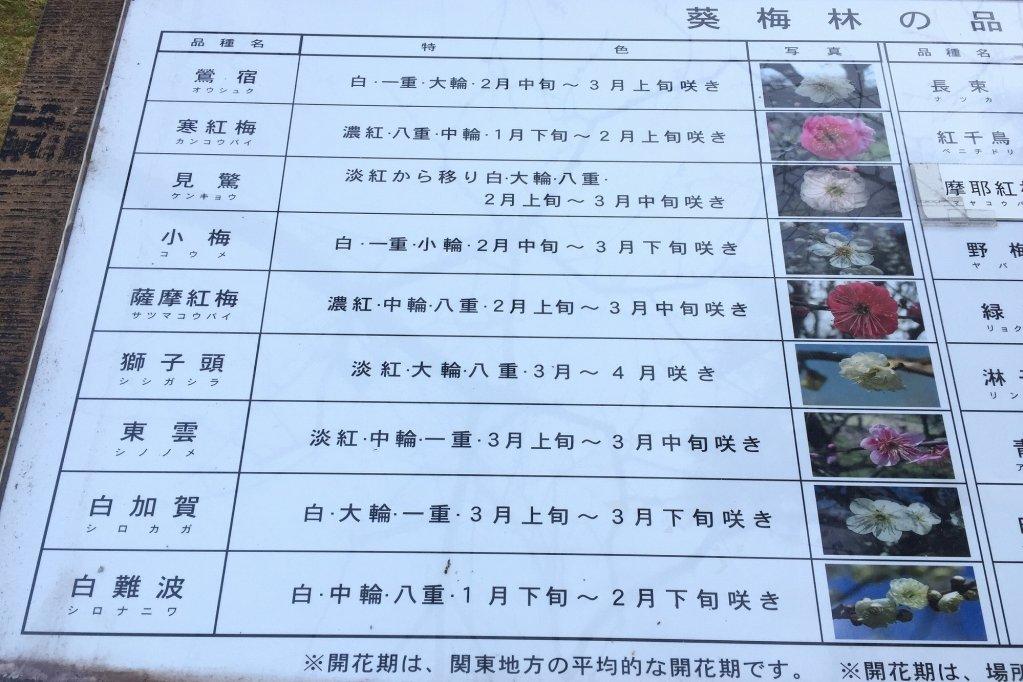 葵梅林の品
品種名 特色 写真 品種名
鶯宿
オウシュク
白・一重・大輪・2月中旬～3月上旬咲き
寒紅梅
カンコウバイ
濃紅・八重・中輪・1月下旬～2月上旬咲き
見驚
ケンキョウ
淡紅から移り白・大輪・八重・
2月上旬～3月中旬咲き
小梅
コウメ
白・一重・小輪・2月中旬～3月下旬咲き
薩摩紅梅
サツマコウバイ
濃紅・中輪・八重・2月上旬～3月中旬咲き
獅子頭
シシガシラ
淡紅・大輪・八重・3月～4月咲き
東雲
シノノメ
淡紅・中輪・一重・3月上旬～3月中旬咲き
白加賀
シロカガ
白・大輪・一重・3月上旬～3月下旬咲き
白難波
シロナニワ
白・中輪・八重・1月下旬～2月下旬咲き
長束
ナツカ
紅千鳥
ベニチドリ
摩耶紅
マヤコウ
野梅
ヤバ
緑
リョク
淋
リン
※開花期は、関東地方の平均的な開花期です。 ※開花期は、場所